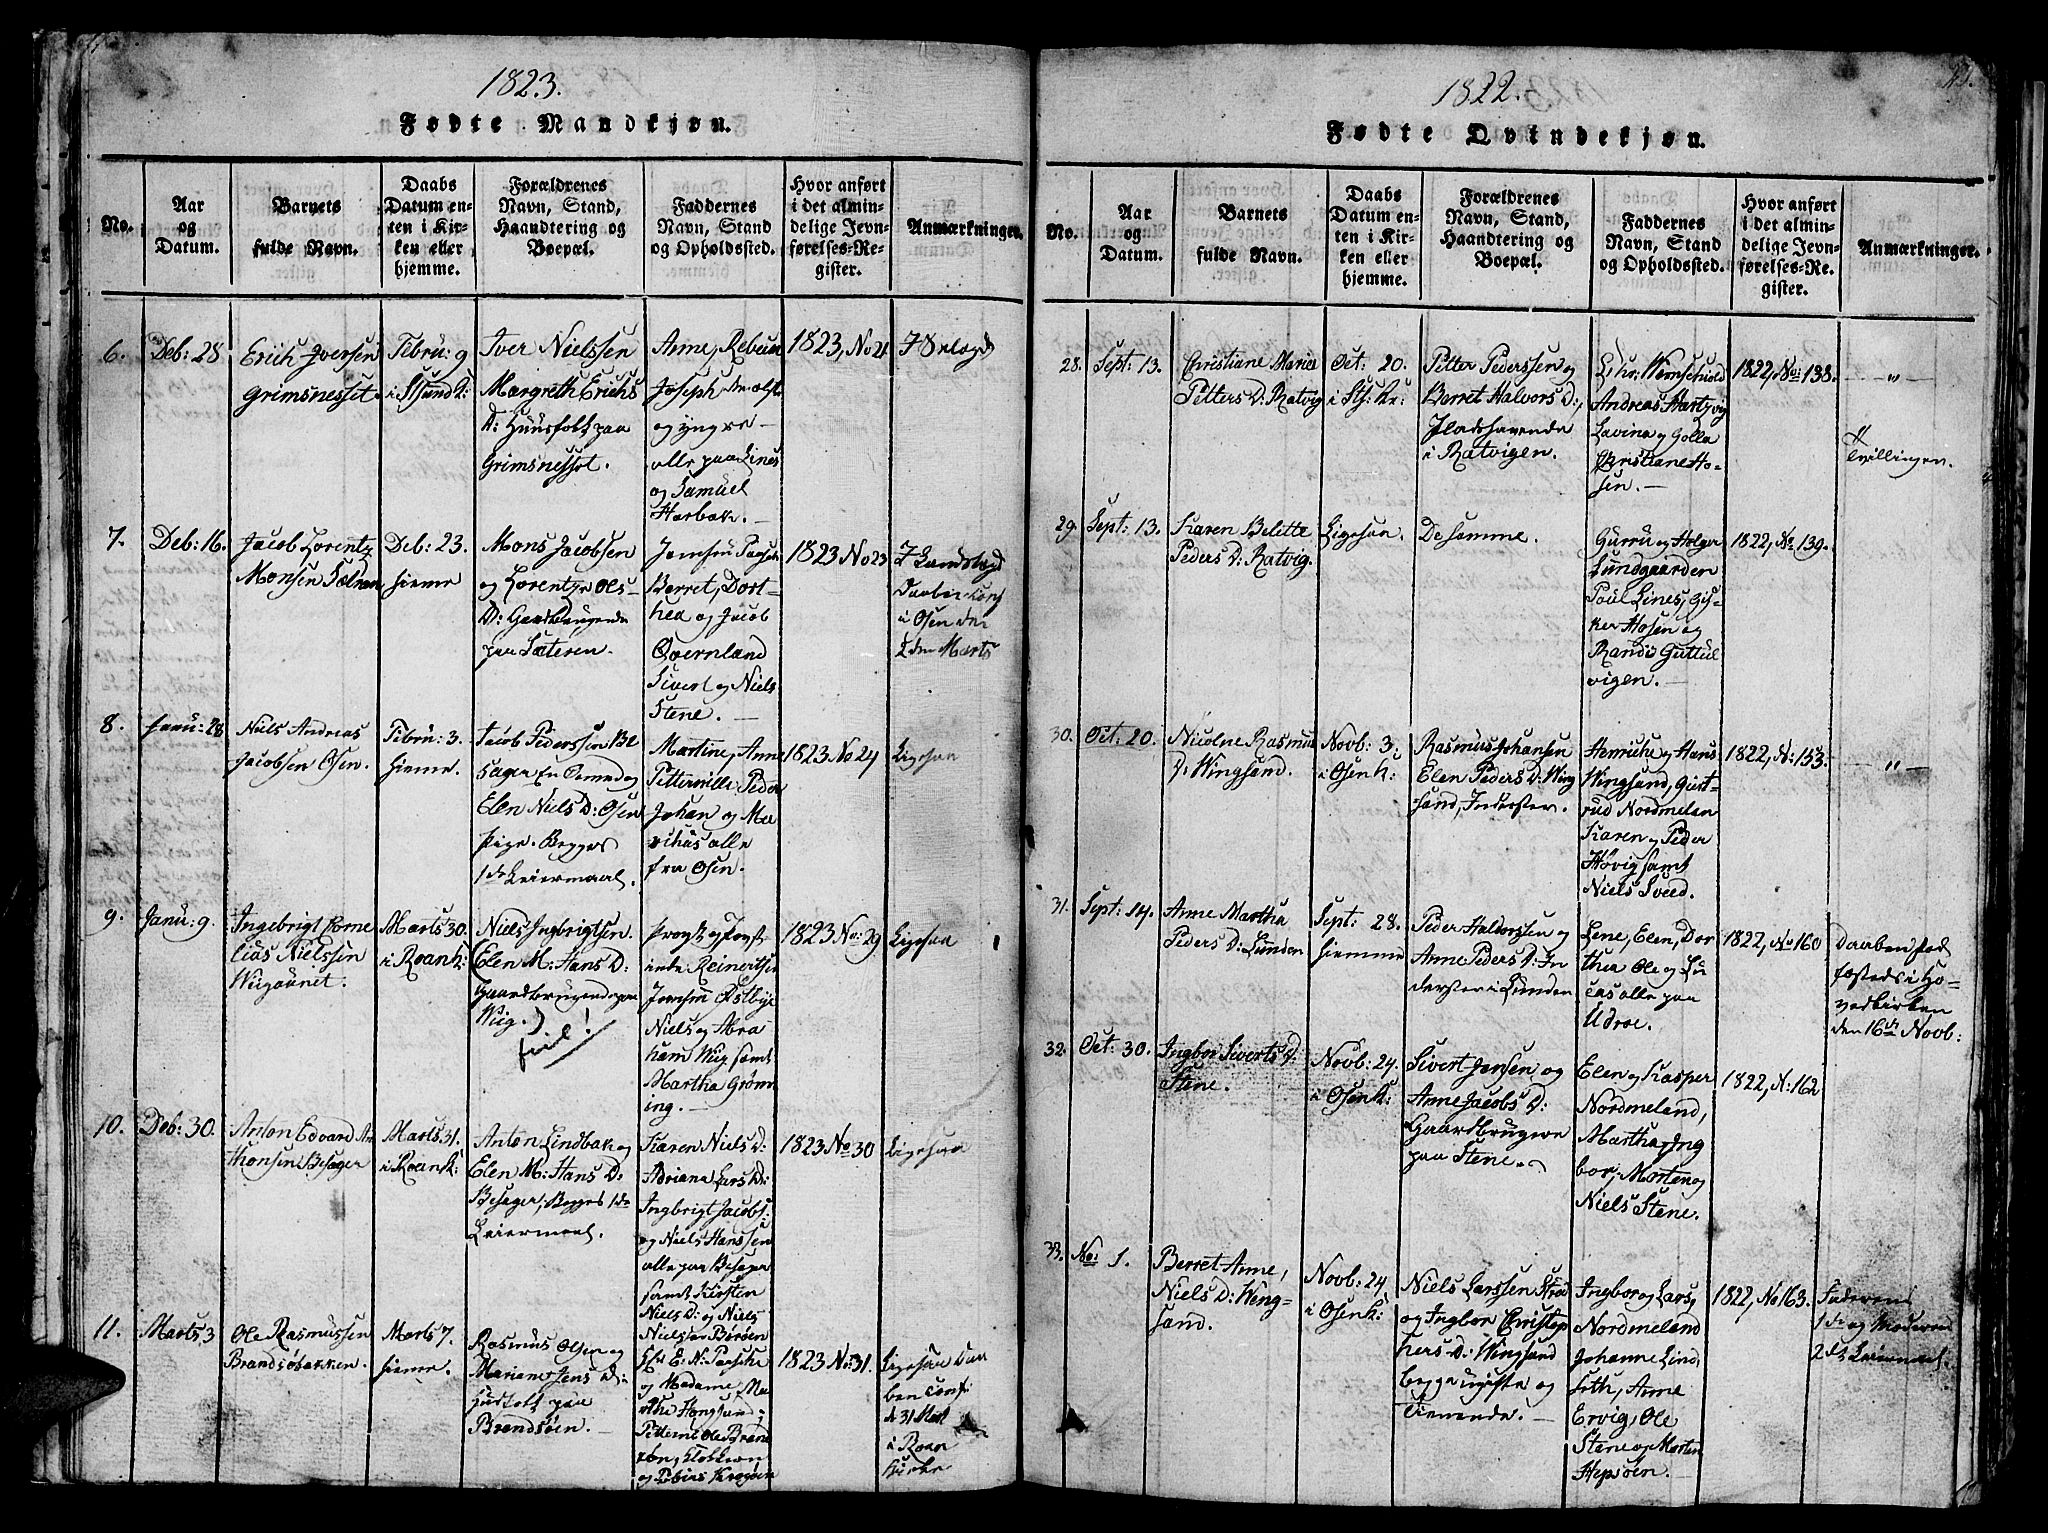 1823.
Fødte Mandkjøn.
No.
Aar
og
Datum.
Barnets
fulde Navn.
Daabs
Datum en-
ten i Kir-
ken eller
hjemme.
Forældrenes
Navn, Stand,
Haandtering og
Boepæl.
Faddernes
Navn, Stand
og Opholdssted.
Hvor anført
i det almin-
delige Jevn-
førelses-Re-
gister.
Anmærkninger.
6.
Deb: 28
Erich Iversen
Grimsnesset
Febru: 9
Iver Nielssen
Margreth Erichs
D: Huusfolk paa
Grimsnesset.
Anne, Rebecca
Joseph
og yngre
alle paa Lines
og Samuel
Harbak.
1823, No 21
7.
Deb: 16.
Jacob Lorentz
Monsen Sætran
Deb: 23.
hieme
Mons Jacobsen
og Lorentze Ols
D: Gaardbrugende
paa Sæteren.
Berret, Dort-
hea og Jacob
Qvernland
Sivert og Niels
Stene.
1823 No 23
i Osen den
2den Marts
8.
Janu: 28
Niels Andreas
Jacobsen Osen.
Febru: 3.
hieme.
Jacob Pederssen Be
sager En
Elen Niels D: Osen
pige. Begges
1de Leiermaal.
Martine, Anne
Petternille Peder
Johan og Ma
alle
fra Osen.
1823 No 24
Ligesaa
9.
Janu: 9.
Ingebrigt Corne
lias Nielssen
Wiigaunet.
Marts 30.
i Roan K:
Niels Ingbrigtsen.
(Elen M: Hans D:
Gaardbrugende paa
Wiig.)
feil!
Reinertsen
Jomfru Østbye
Niels og Abra
ham Wiig samt
Martha Grøm-
ing.
1823 No: 29
Ligesaa
10.
Deb: 30.
Anton Edvard An
thonsen Besager
Marts 31.
i Roan K:
Anton Lindbak og
Elen M: Hans D:
Besager, Begges 1de
Leiermaal.
Karen Niels D:
Adriana Lars D:
Ingbrigt Jacobs:
og Niels Hanssen
alle paa Besager
samt Kirsten
Niels D: og Niels
Nielssen Birøen
1823 No 30
Ligesaa
11.
Marts 3
Ole Rasmussen
Brandsøbakken.
Marts 7.
hieme.
Rasmus Olsen og
Mariane Jens D:
Husfolk paa
Brandsøen.
og Madame, Ma
the Hongsand;
Petterne Ole Brand
søn, Klokkeren
og Tobias Kragøen
1823 No: 31.
Ligesaa Daa
ben conf:
d 31 Mart
i Roan
Kirke
1822.
23.
Fødte Qvindekjøn.
No.
Aar
og
Datum.
Barnets
fulde Navn.
Daabs
Datum en-
ten i Kir-
ken eller
hjemme.
Forældrenes
Navn, Stand,
Haandtering og
Boepæl.
Faddernes
Navn, Stand
og Opholdssted.
Hvor anført
i det almin-
delige Jevn-
førelses-Re-
gister.
Anmærkninger.
28.
Sept: 13.
Christiane Marie
Petters D: Ratvig
Oct: 20.
i Stj: Kr:
Petter Pederssen og
Berret Halvors D:,
Pladshavende
i Ratvigen.
Hr: Wernschiold
Andreas Hartzvig
Lavina og Golla
Christiane Ho-
sen.
1822, No: 138.
— " —
Tvillinger.
29.
Sept: 13.
Karen Belette
Peders D: Ratvig.
Ligesaa.
De samme.
Gurru og Holger
Lundgaarden
Poul Lines, Gis-
ken Hosen og
Randi Guttel
vigen.
1822, No 139.
30.
Oct: 20.
Nicoline Rasmus
D: Wingsand.
Novb: 3.
i Osen k:
Rasmus Johansen
Elen Peders D: Wing
sand, Inderster.
Henriche og Hans
Wingsand, Gurt-
rud Nordmelan
Karen og Peder
Høvig samt
Niels Sveed.
1822, N: 153.
— " —
31.
Sept: 14.
Anne Martha
Peders D: Lunden
Sept: 28.
hiemme
Peder Halvorssen og
Anne Peders D: In
derster i Lunden
Lene, Elen, Dor
thea Ole og Lu
cas alle paa
Udroe.
1822, No 160
Daaben stad
fæstedes i Ho-
vedkirken
den 16de Novb:
32.
Oct: 30.
Ingbor Siverts D:
Stene.
Novb: 24.
i Osen K:
Sivert Jensen og
Anne Jacobs D:
Gaardbrugere
paa Stene.
Elen og Kasper
Nordmeland,
Martha, Ing
bor, Morten og
Niels Stene.
1822, N: 162
33.
No: 1.
Berret Anne,
Niels D: Weng-
sand.
Novb: 24
i Osen K:
Niels Larssen Strøe
og Ingbor Christop
hers D: Wingsand
begge ugifte og
tienende.
Ingbor og Lars,
Nordmeland
Johanne Lind
seth, Anne
Ervig, Ole
Stene og Morten
Hepsøen.
1822, No 163.
Faderens
1de og Moderens
2det Leiermaal.